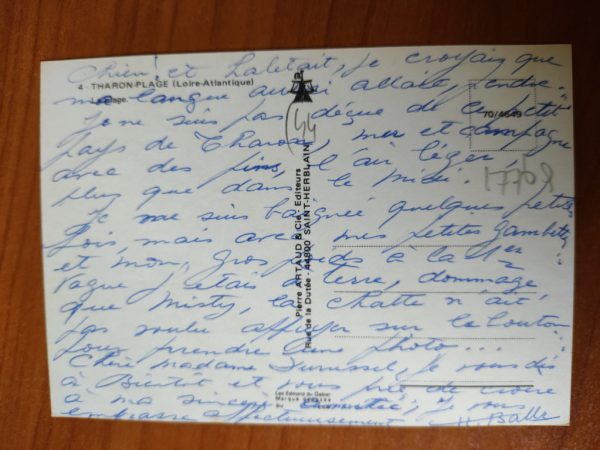 Chien! et haletait, je croyais que
4 - THARON-PLAGE (Loire-Atlantique)
ma langue aussi allait pendre.
La plage.
Je ne suis pas déçue de ce petit
70/4649
(44
pays de Tharon, mer et campagne
avec des pins, l'air léger
plus que dans le Midi
17758
Je me suis baignée quelques petites
fois, mais avec mes petites gambettes
et mon gros poids à la 1ère
vague j'étais à terre, dommage
que Misty, la chatte n'ait
pas voulu appuyer sur le bouton
pour prendre une photo...
Chère Madame je vous dis
à Bientôt et vous prie de croire
à ma sincère amitié, Je vous
embrasse affectueusement H. Balle
Pierre ARTAUD & Cie - Editeurs
Rue de la Dutée - 44800 SAINT-HERBLAIN
Les Editions du Gabier
Marque déposée